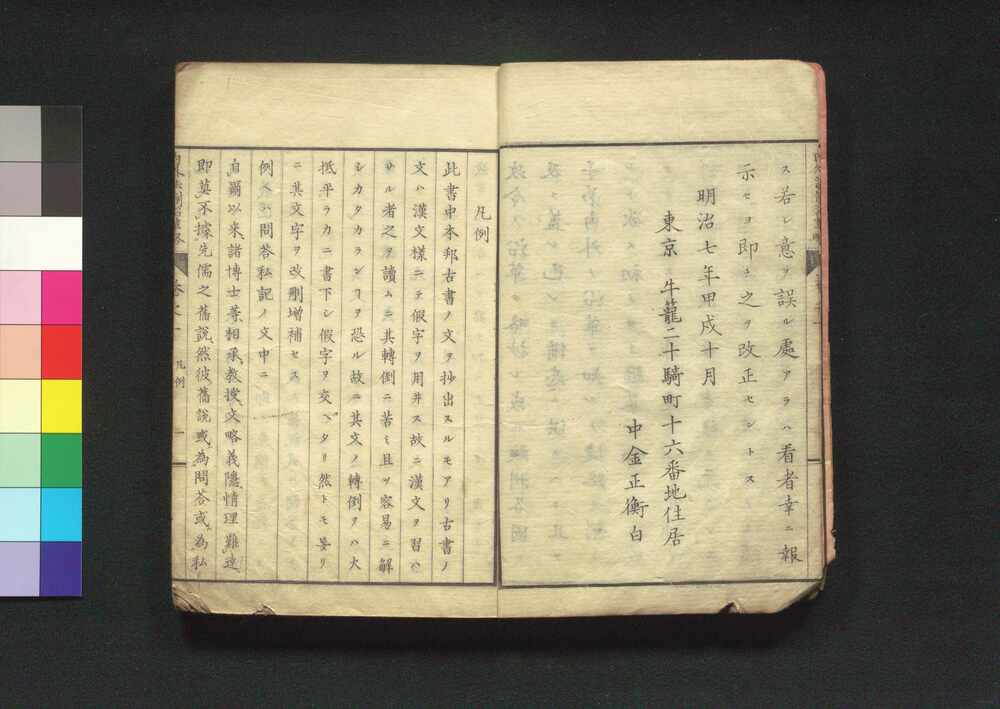 ス若シ意ヲ誤ル處アラハ看者幸ニ報
示セヨ即チ之ヲ改正セントス
明治七年甲戌十月
東京 牛籠二十騎町十六番地住居
中金正衡白
凡例
此書中本邦古書ノ文ヲ抄出スルモアリ古書ノ
文ハ漢文樣ニテ假字ヲ用井ス故ニ漢文ヲ習ハ
サル者之ヲ讀ムニ其轉倒ニ苦ミ且ツ容易ニ解
シカタカランヿヲ恐ル故ニ其文ノ轉倒ヲハ大
抵平ラカニ書下シ假字ヲ交ヘタリ然トモ妄リ
ニ其文字ヲ改刪增補セス
例ヘハ問答私記ノ文中ニ
自爾以來諸博士等相承教授文略義隱情理難達
即莫不據先儒之舊說然彼舊說或為問答或為私
凡例
一